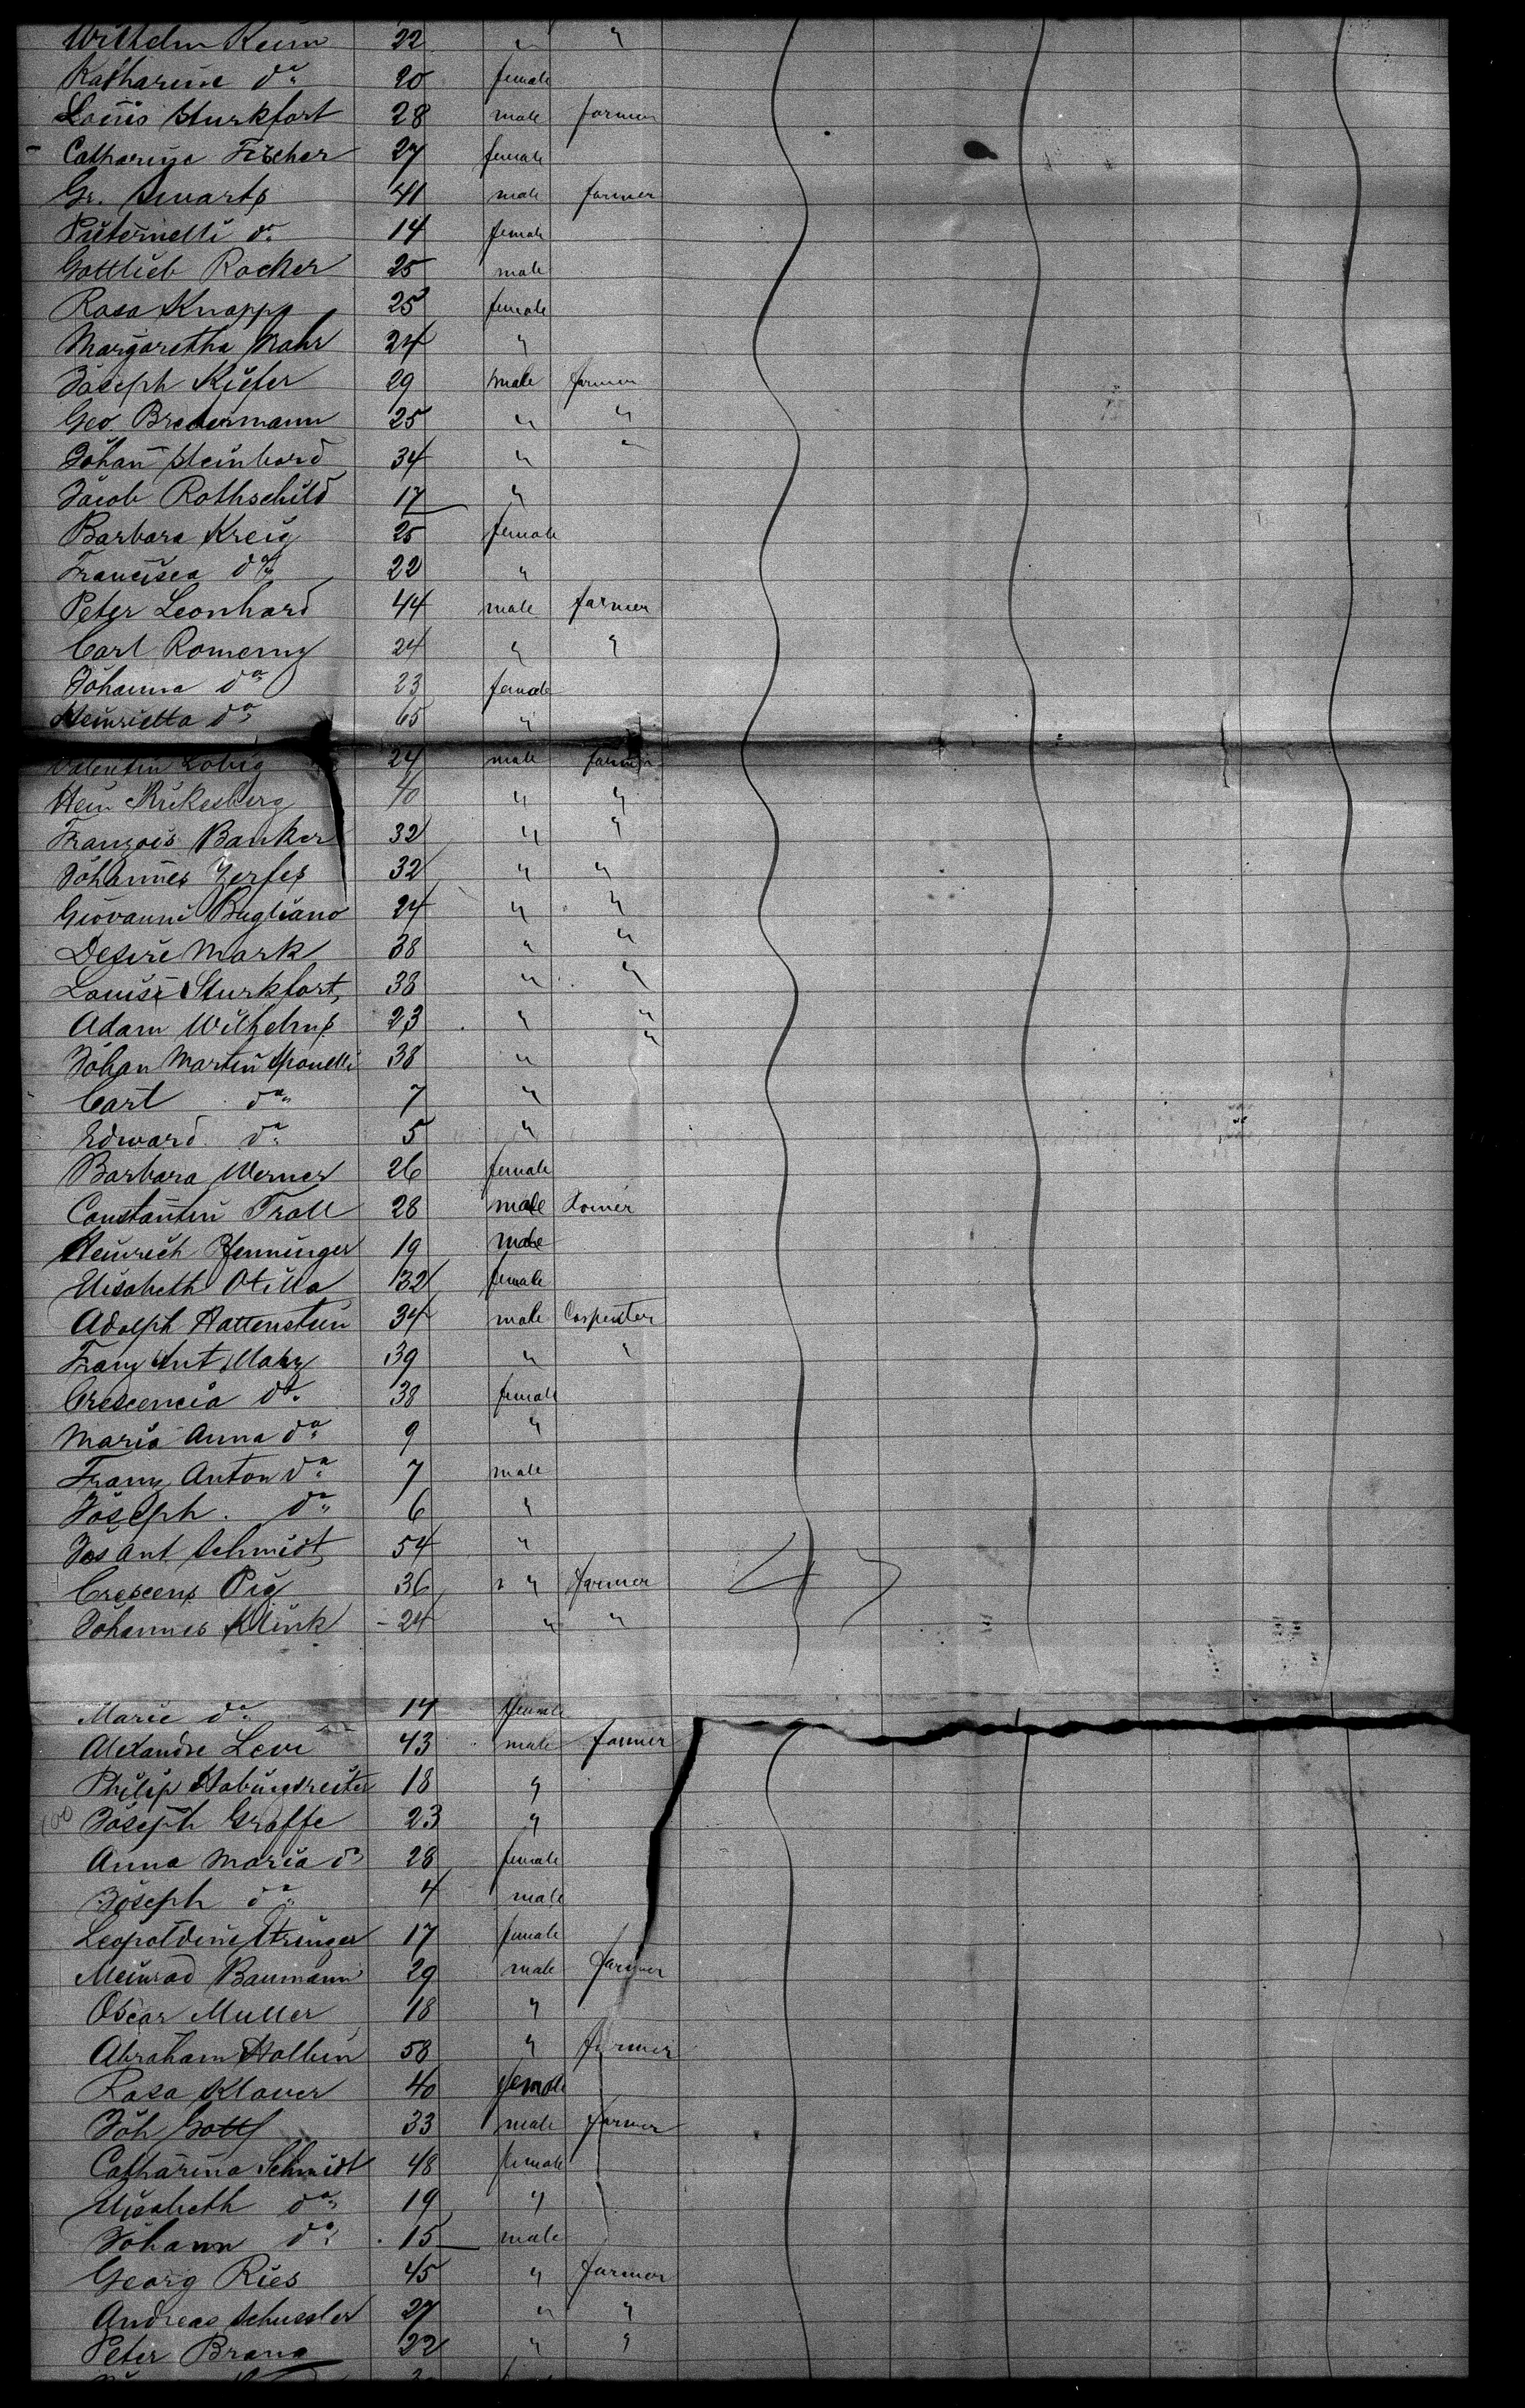 Wilhelm Keim 22 " "
Katharine do 20 female
Louis Sturkfort 28 male farmer
Catharina Fischer 27 female
Gr. Swarts 41 male farmer
Pieternelli do 14 female
Gottlieb Rocker 25 male
Rosa Knapp 25 female
Margaretha Mohr 24 "
Joseph Kiefer 29 male farmer
Geo. Bredermann 25 " "
Johan Steinhard 34 " "
Jacob Rothschild 17 "
Barbara Kreig 25 female
Francisca do 22 "
Peter Leonhard 44 male farmer
Carl Romerny 24 " "
Johanna do 23 female
Heinrietta do 65 "
Valentin Lobig 24 male farmer
Hein 40 " "
François Banker 32 " "
Johannes Zerfes 32 " "
Giovanni Bugliano 24 " "
Desire Mark 38 " "
Louise Sturkfort 38 " "
Adam Wilhelms 23 " "
Johan Martin 38 " "
Carl do 7 "
Edward do 5 "
Barbara Werner 26 female
Constantin Troll 28 male
Heinrich Pfenninger 19 male
Elisabeth Otilla 32 female
Adolph Hattenstein 34 male Carpenter
Franz Ant. 39 " "
Crescencia do 38 female
Maria Anna do 9 "
Franz Anton do 7 male
Joseph do 6 "
Jos Ant Schmidt 54 "
Crescens 36 " farmer
Johannes Klink 24 " "
Marie do 14 female
Alexandre Levi 43 male farmer
Philip 18 "
100 Joseph Graffe 23 "
Anna Maria do 28 female
Joseph do 4 male
Leopoldine Stringer 17 female
Meinrad Baumann 29 male farmer
Oscar Muller 18 "
Abraham Holbein 58 " farmer
Rosa Klauer 40 female
Joh Gottf 33 male farmer
Catharina Schmidt 48 female
Elisabeth do 19 "
Johann do 15 male
Georg Ries 45 " farmer
Andreas Schussler 27 " "
Peter Brang 22 " "